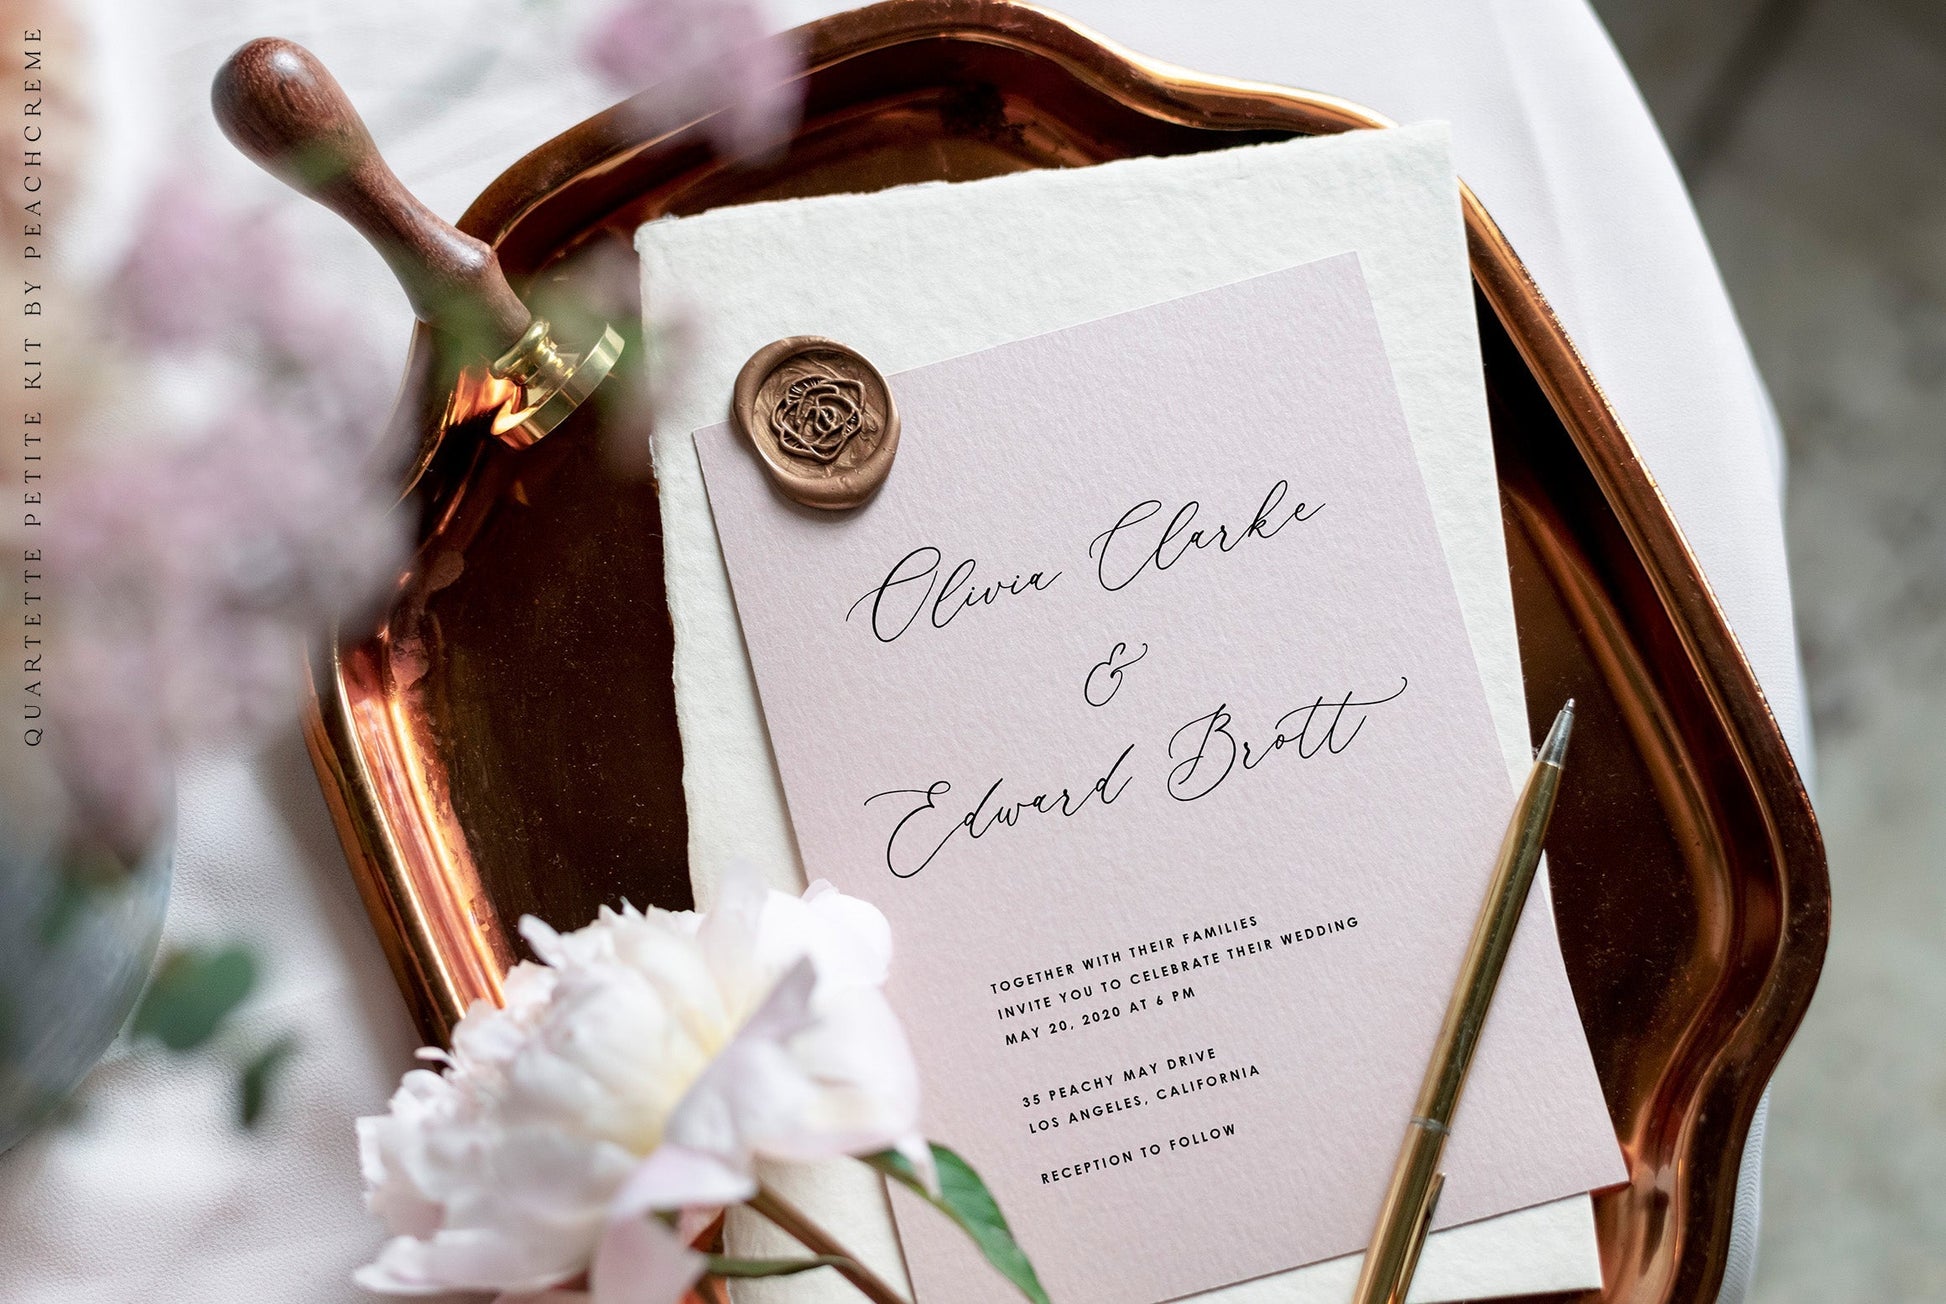 QUARTETTE PETITE KIT BY PEACHCREME
Olivia Clarke
&
Edward Brott
TOGETHER WITH THEIR FAMILIES
INVITE YOU TO CELEBRATE THEIR WEDDING
MAY 20, 2020 AT 6 PM
35 PEACHY MAY DRIVE
LOS ANGELES, CALIFORNIA
RECEPTION TO FOLLOW